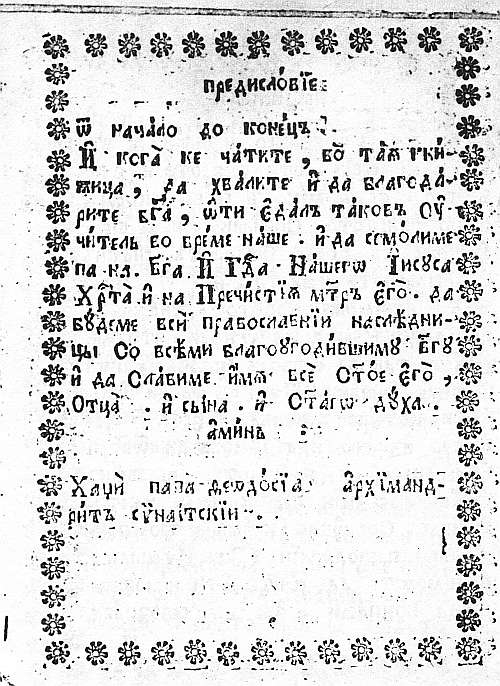 предисло́вїе:
Ѿ нача́ло до коне́цъ.
И҆ кога̀ ке ча́тите, во̀ та́ѧ кни́-
жица, да хва́лите и҆ да благода́-
рите бг҃а, ѡ҆ти є҆да́лъ та́ковъ ᲂу҆-
чи́тель во вре́ме на́ше. и҆ да се мо́лиме
па на Бг҃а. И҆ Гд҃а На́шегѡ І҆исуса
Хрⷭ҇та̀. и҆ на Пречи́стїѧ мт҃ръ є҆го̀. да
бꙋ́деме всѝ православнїи наслѣ́дни-
цы Со всѣ́ми благоугоди́вшимꙋ Бг҃ꙋ
и҆ да Сла́виме и҆́мѧ всѐ Ст҃о́е є҆го̀,
Отца̀. и҆ сы́на. и҆ Ст҃а́гѡ дꙋ́ха.
а҆ми́нь:
Хаџѝ папа ѳеѡдо́сїа а҆рхїманд-
ри́тъ сѷнаі́тскїи.